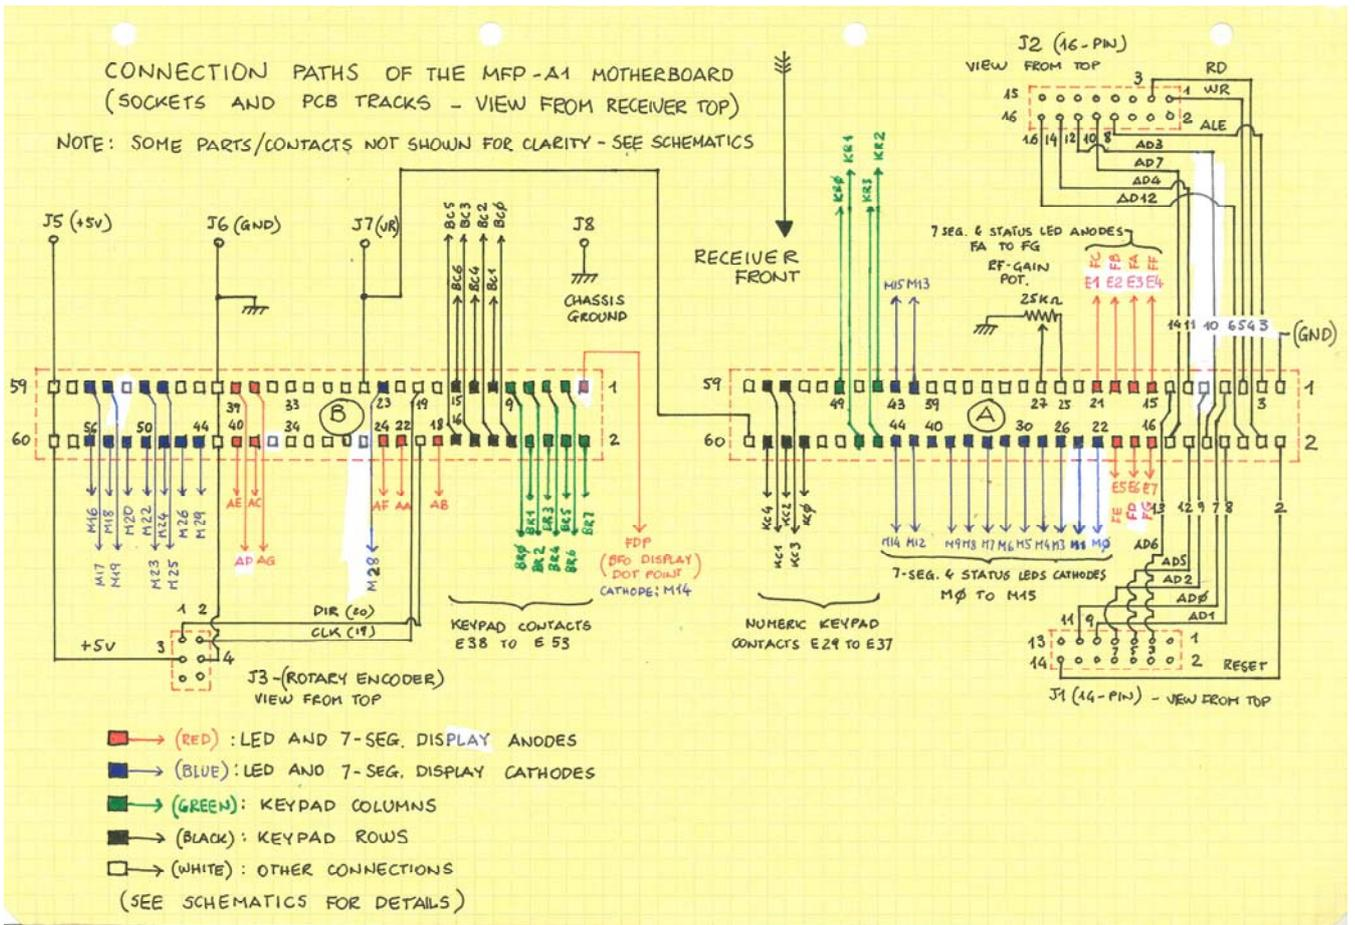 CONNECTION PATHS OF THE MFP-A1 MOTHERBOARD
(SOCKETS AND PCB TRACKS - VIEW FROM RECEIVER TOP)
NOTE: SOME PARTS/CONTACTS NOT SHOWN FOR CLARITY - SEE SCHEMATICS
J2 (16-PIN)
VIEW FROM TOP
3 RD
15 1 WR
16 2 ALE
16 14 12 10 8
AD3
AD7
AD4
AD12
J5 (+5V)
J6 (GND)
J7 (VR)
BC5 BC3 BC2 BCØ
BC6 BC4 BC1
J8
CHASSIS
GROUND
RECEIVER
FRONT
KR1 KR2
KRØ KR3
M15 M13
7 SEG. & STATUS LED ANODES
FA TO FG
RF-GAIN
POT.
25KΩ
FC FB FA FF
E1 E2 E3 E4
14 11 10 6 5 4 3
(GND)
59 1
39 33 23 19 15 9
B
60 2
56 50 44 40 34 24 22 18 16
59 1
49 43 39 27 25 21 15 3
A
60 2
44 40 30 26 22 16
M16 M18 M20 M22 M24 M26 M29
M17 M19 M23 M25
AE AC
AD AG
M28
AF AA AB
BRØ BR1 BR2 BR3 BR4 BR5 BR6 BR7
FDP
(BFO DISPLAY)
DOT POINT)
CATHODE: M14
KC4 KC2 KCØ
KC1 KC3
M14 M12 M9 M8 M7 M6 M5 M4 M3 M1 MØ
E5 E6 E7
FE FD FG
13 12 9 7 8 2
7-SEG. & STATUS LEDS CATHODES
MØ TO M15
AD6
AD5
AD2
ADØ
AD1
1 2
DIR (20)
CLK (19)
+5V 3 4
J3-(ROTARY ENCODER)
VIEW FROM TOP
KEYPAD CONTACTS
E38 TO E53
NUMERIC KEYPAD
CONTACTS E29 TO E37
11 9
13 1
7 5 3
14 2 RESET
J1 (14-PIN) - VIEW FROM TOP
(RED) : LED AND 7-SEG. DISPLAY ANODES
(BLUE) : LED AND 7-SEG. DISPLAY CATHODES
(GREEN) : KEYPAD COLUMNS
(BLACK) : KEYPAD ROWS
(WHITE) : OTHER CONNECTIONS
(SEE SCHEMATICS FOR DETAILS)